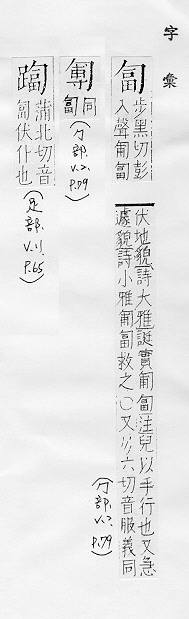 字彙
匐
步黑切彭
入聲匍匐
伏地貌詩大雅誕實匍匐注兒以手行也又急
遽貌詩小雅匍匐救之○又六切音服義同
(勹部, V.2, P.79)
同
匐
(勹部, V.2, P.79)
蒲北切音
匐伏什也
(足部, V.11, P.65)